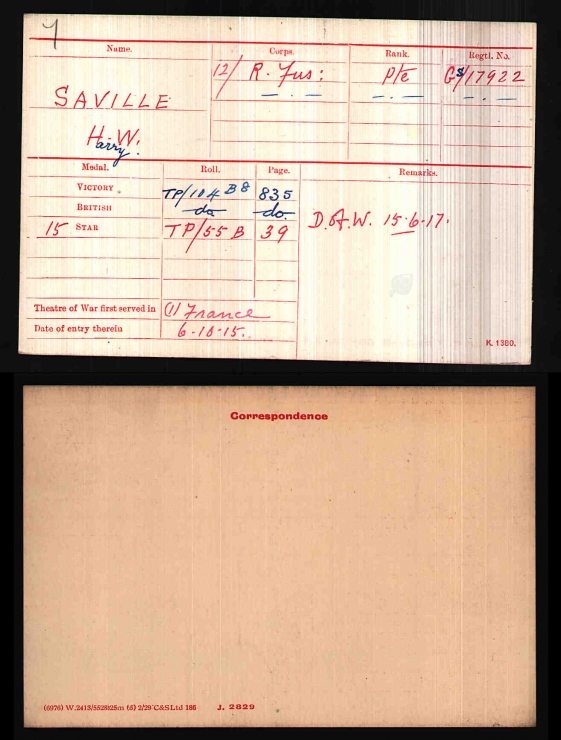 Name.
Corps.
Rank.
Regtl. No.
SAVILLE
H. W.
Harry.
12/ R. Fus:
Pte
GS/17922
Medal.
Roll.
Page.
Remarks.
VICTORY
TP/104 B8
835
BRITISH
do
do.
15 STAR
TP/55 B
39
D. of. W. 15.6.17.
Theatre of War first served in
(1) France
Date of entry therein
6-10-15.
K. 1380.
Correspondence
J. 2829